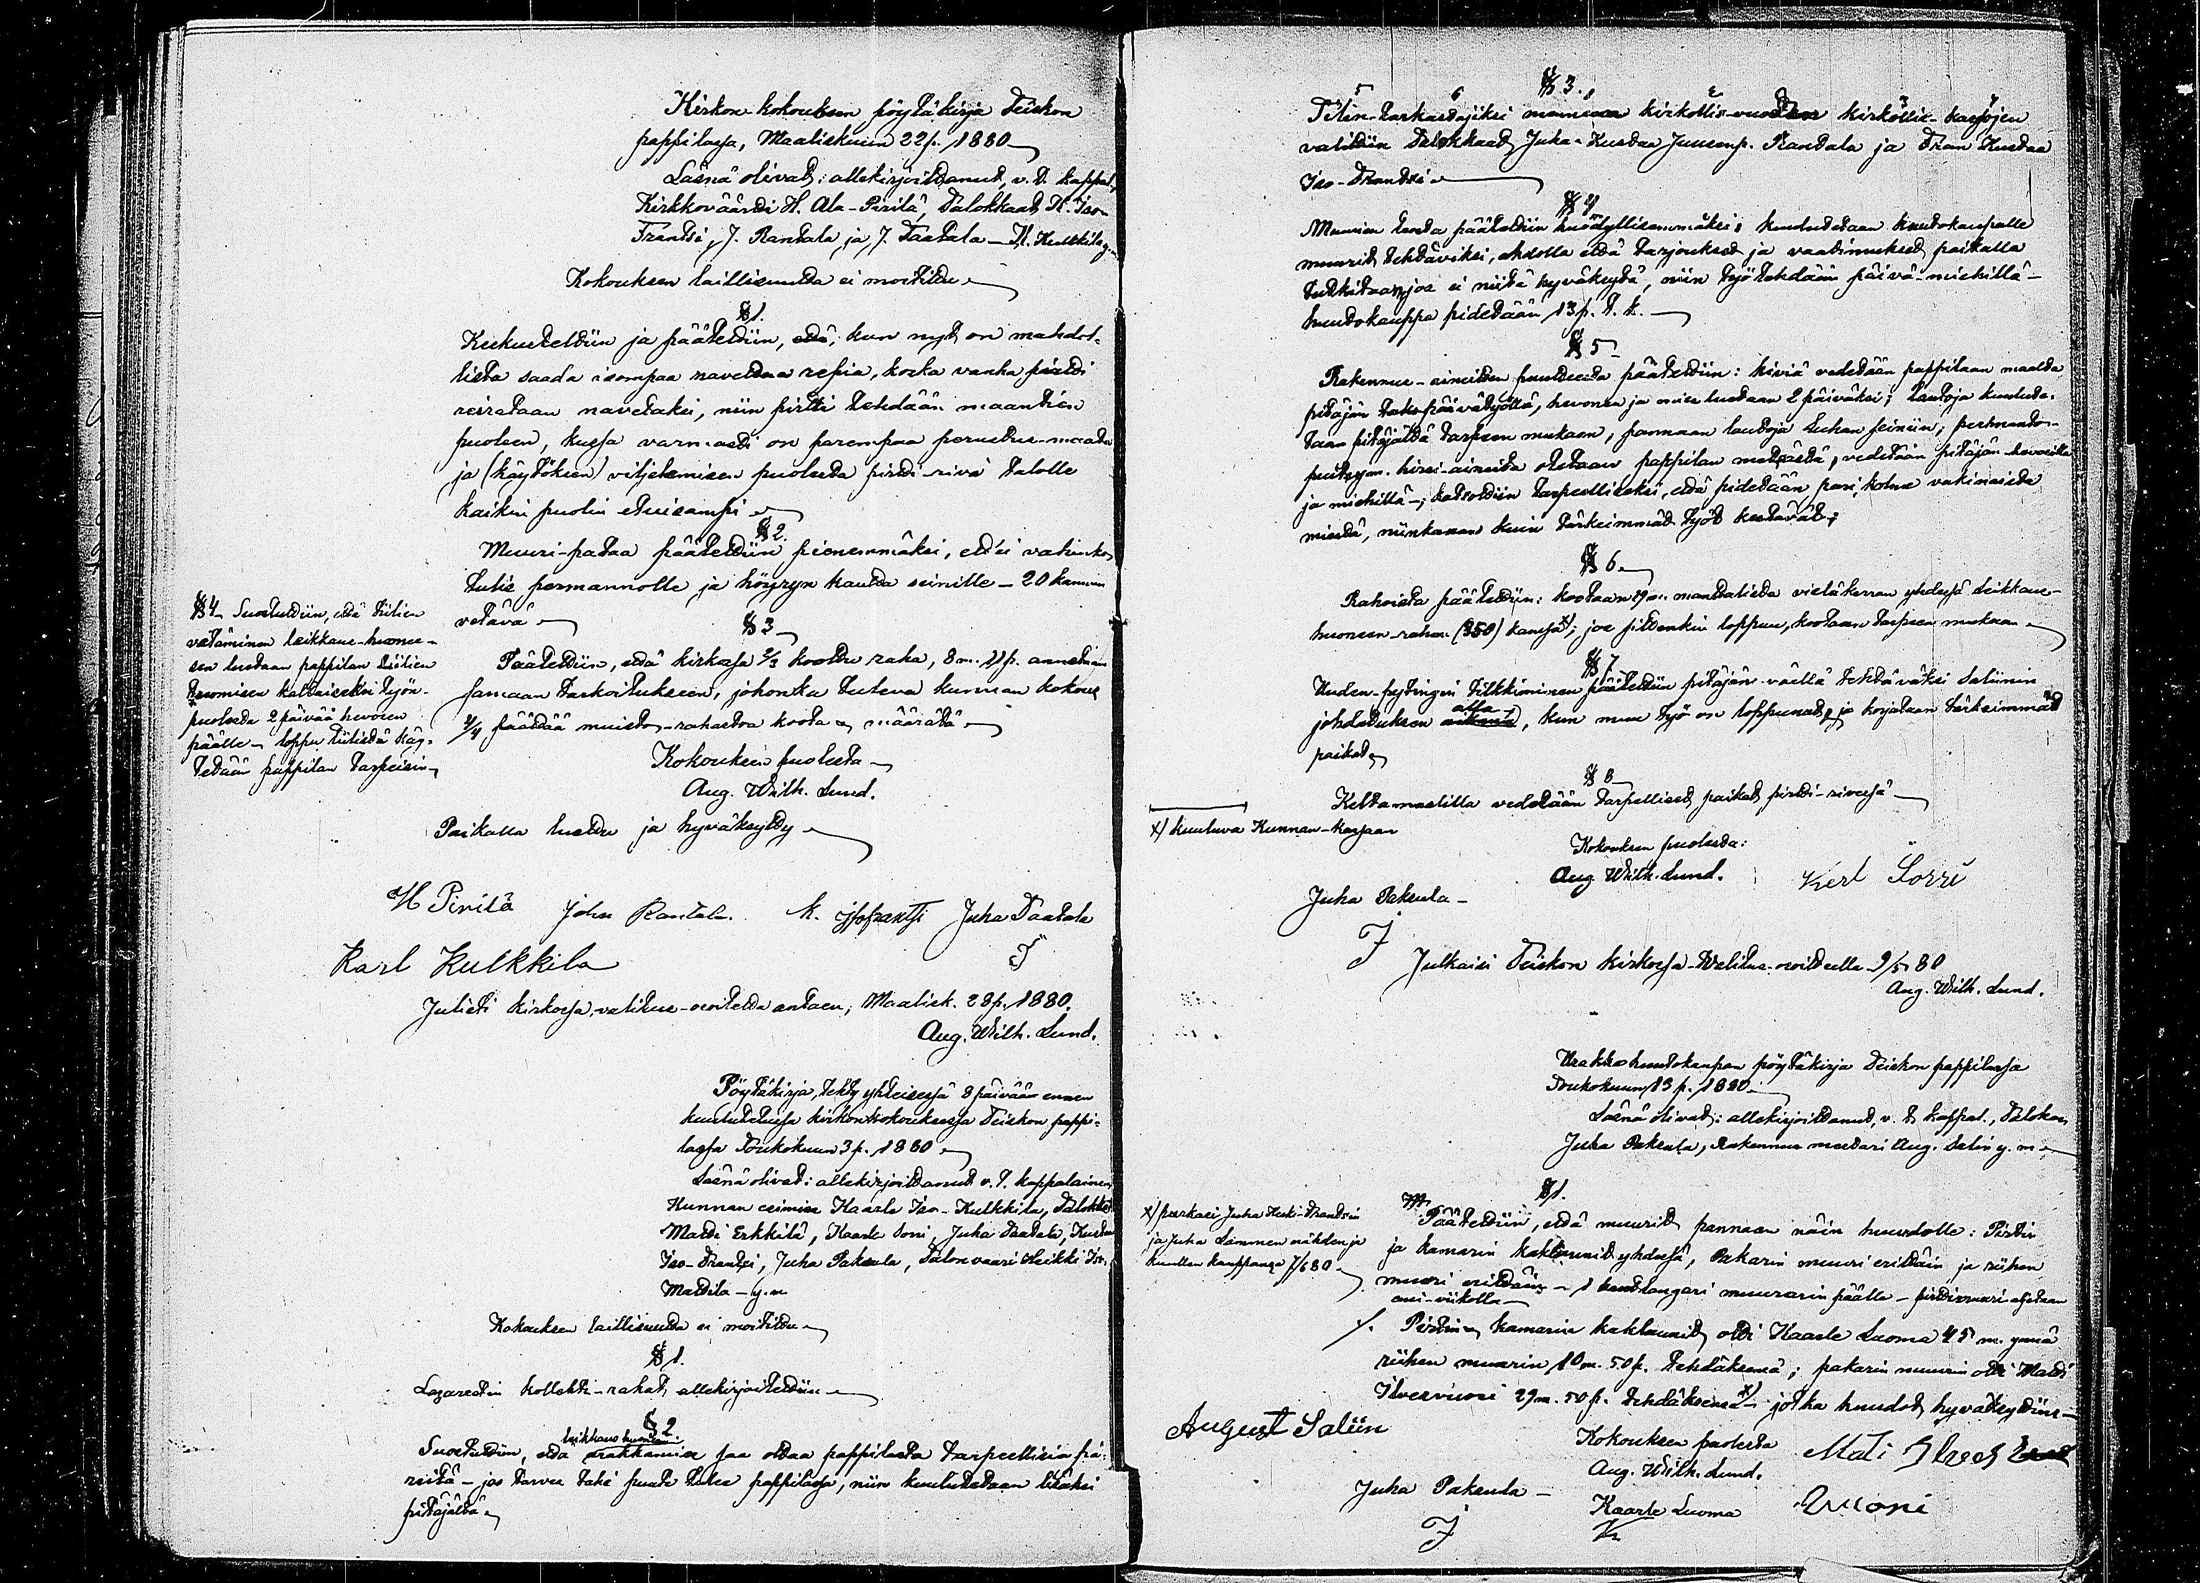 Kirkon-kokouksen pöytäkirja Teiskon
pappilassa, Maaliskuun 22 p. 1880
Läsnä olivat: allekirjoittanut, v. t. kappal.
Kirkkoväärti H. Ala-Pirilä, Talokkaat K. Iso-
Frantsi, J. Rantala ja J. Taatala — K. Kulkkila y.
Kokouksen laillisuutta ei moitittu
§ 1.
Keskusteltiin ja päätettiin, että, kun nyt on mahdol-
lista saada isompaa navettaa, koska vanha pirtti
siiretaan navetaksi, niin pirtti tehdään maantien
puoleen, kussa varmasti on parempaa perustus-maata
ja (käytöksen) viljelemisen puolesta pirtti-rivi talolle
kaikin puolin etuisampi
§ 2.
Muuri-pataa päätettiin pienemmäksi, ett'ei
tulis permannolle ja höyryn kautta seinille — 20 kannun
vetävä
§ 3
Päätettiin, että kirkossa 2/3 koottu raha, 8 m. 11 p. annetaan
samaan tarkoitukseen, johonka tuleva kunnan kokous
2/4 päättää muisto-rahastoa koota ja määrätä
§ 4 Suostuttiin, että tiilien
vetäminen leikkaus-huoneu-
sen luetaan pappilan tiilien
tuomisen kaltaiseksi työn-
puolesta 2 päivää hevosen
päälle — loppu tiilistä käy-
tetään pappilan tarpeisiin
Kokouksen puolesta
Aug. Wilh. Lund.
Paikalla luettu ja hyväksytty
H Pirilä John Rantala. K. Isofrantsi Juha Taatala
Karl Kulkkila
Julisti kirkossa, valitus-osoitetta antaen, Maalisk. 28 p. 1880.
Aug. Wilh. Lund.
Pöytäkirja, tehty yhteisessä 8 päivää ennen
kuulutetussa kirkonkokouksessa Teiskon pappi-
lassa Toukokuun 3 p. 1880
Läsnä olivat: allekirjoittanut v. t. kappalainen
Kunnan esimies Kaarle Iso-Kulkkila, Talokkaat
Matti Erkkilä, Kaarle Sorri, Juha Taatala, Kustaa
Iso-Frantsi, Juha Paksula, Talonvaari Heikki Iso-
Mattila — y. m
Kokouksen laillisuutta ei moitittu
§ 1.
Lazarettin kollehti-rahat allekirjoitettiin
§ 2
leikkaus huoneus
Suostuttiin, että urakkamies saa ottaa pappilasta tarpeellisia pä-
reitä — jos tarvee taki puute tulee pappilassa, niin kuulutetaan lisäksi
pitäjältä
§ 3.
Tilin-tarkastajiksi menneen kirkollis-vuoden kirkollis-kassojen
valittiin Talokkaat Juha Kustaa Juusenp. Rantala ja Frans Kustaa
Iso-Frantsi
§ 4
Muurien teosta päätettiin huodyllisemmäksi; kuulutetaan huutokaupalle
muurit tehtäviksi, ehdolla että tarjoukset ja vaatimukset paikalla
tutkitaan, jos ei niitä hyväksytä, niin työ tehdään päivä-miehillä —
huutokauppa pidetään 13 p. t. k.
§ 5
Rakennus-aineitten puutteesta päätettiin: kiviä vedetään pappilaan maalta
pitäjän päivätyöllä, hevonen ja mies luetaan 2 päiväksi; lautoja kuulute-
taan pitäjältä tarpeen mukaan, pannaan lautoja seiniin; permanto-
puitaym. hirsi-aineita otetaan pappilan metsästä, vedetään pitäjän hevosilla
ja miehillä —; katsottiin tarpeelliseksi, että pidetään pari, kolme vakinaista
miestä, niinkauan kuin tärkeimmät työt kestävät;
§ 6
Rahoista päätettiin: kootaan 19 m. manttalista vieläkerran yhdessä leikkaus-
huoneen-rahan (350) kanssa x); jos sittenkin loppuu, kootaan tarpeen mukaan
§ 7
Uuden-pytingin tilkkiminen päätettiin pitäjän väellä tehtäväksi Saliinin
johdatuksen alla, kun muu työ on loppunut, ja korjataan tärkeimmät
paikat
§ 8
Keltamullilla vedetään tarpelliset paikat pirtti-rivissä
x) kuuluva Kunnan-kassaan
Kokouksen puolesta:
Aug Wilh. Lund. Kerl Sorri
Juha Paksula —
Julkaisi Teiskon kirkossa Walitus-osoitteella 9/5 80
Aug. Wilh. Lund.
Urakka huutokaupan pöytäkirja Teiskon pappilassa
Toukokuun 13 p. 1880
Läsnä olivat: allekirjoittanut, v. t. kappal., Talokas
Juha Paksula, Rakennus mestari Aug. Salin y. m
§ 1.
Päätettiin, että muurit pannaan näin huudolle: Pirtin
ja kamarin kakluunit yhdessä, Pakarin muuri erittäin ja riihen
muuri erittäin — 1 hantlangari muurarin päälle — pirtinmuuri aljetaan
ensi-viikolla
x) purkasi Juha Heiki-Frantsin
ja Juha Lammen nähden ja
kuullen kauppansa 7/6 80
Pirtin kamarin kakluunit otti Kaarle Luoma 45 m. ynnä
riihen muurin 10 m. 50 p. tehdäksensä; pakarin muurin otti Matti
Ilvesvuori 29 m. 50 p. tehdäksensä x) — jotka huudot hyväksyttiin —
August Saliin
Kokouksen puolesta
Aug. Wilh. Lund.
Mati Ilves
Juha Paksula —
Kaarle Luoma
Wuori